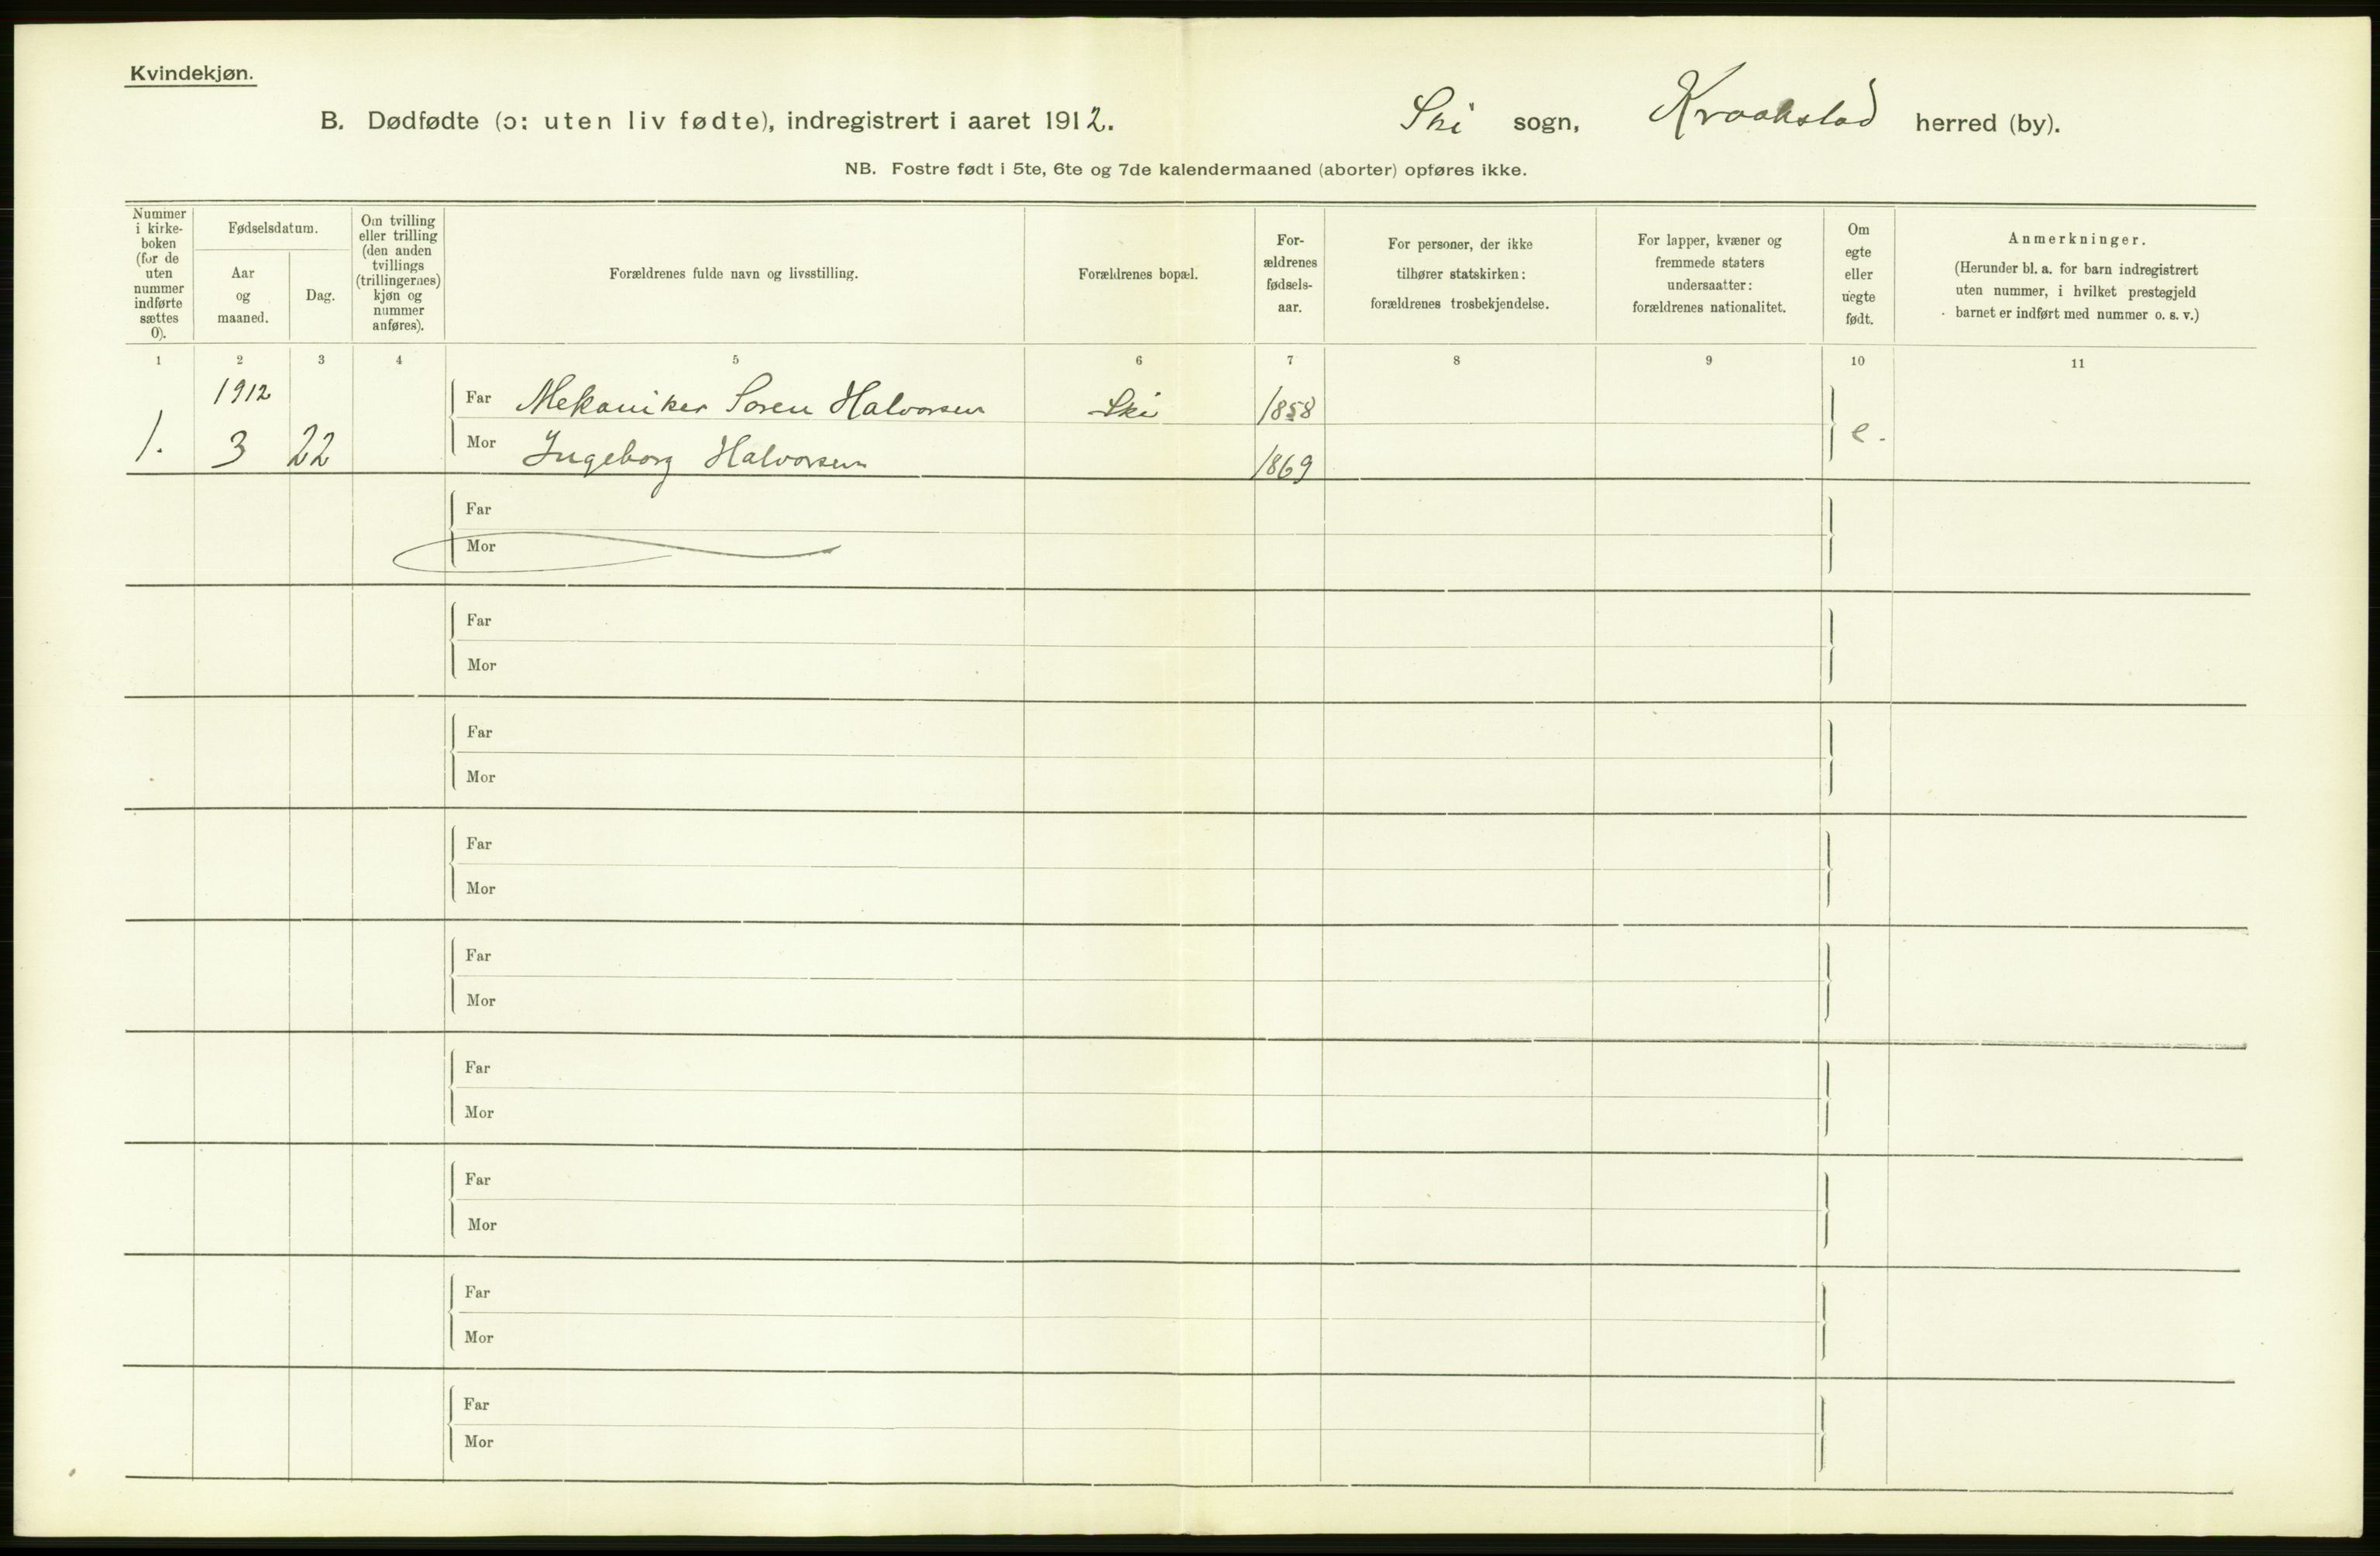 Kvindekjøn.
B. Dødfødte (ɔ: uten liv fødte), indregistrert i aaret 1912.
Ski sogn, Kraakstad herred (by).
NB. Fostre født i 5te, 6te og 7de kalendermaaned (aborter) opføres ikke.
Nummer
i kirke-
boken
(for de
uten
nummer
indførte
sættes
0).
Fødselsdatum.
Aar
og
maaned.
Dag.
Om tvilling
eller trilling
(den anden
tvillings
(trillingernes)
kjøn og
nummer
anføres).
Forældrenes fulde navn og livsstilling.
Forældrenes bopæl.
For-
ældrenes
fødsels-
aar.
For personer, der ikke
tilhører statskirken:
forældrenes trosbekjendelse.
For lapper, kvæner og
fremmede staters
undersaatter:
forældrenes nationalitet.
Om
egte
eller
uegte
født.
Anmerkninger.
(Herunder bl. a. for barn indregistrert
uten nummer, i hvilket prestegjeld
barnet er indført med nummer o. s. v.)
1 2 3 4 5 6 7 8 9 10 11
1912
Far Mekaniker Soren Halvorsen Ski 1858
1. 3 22 Mor Ingeborg Halvorsen 1869 e.
Far
Mor
Far
Mor
Far
Mor
Far
Mor
Far
Mor
Far
Mor
Far
Mor
Far
Mor
Far
Mor